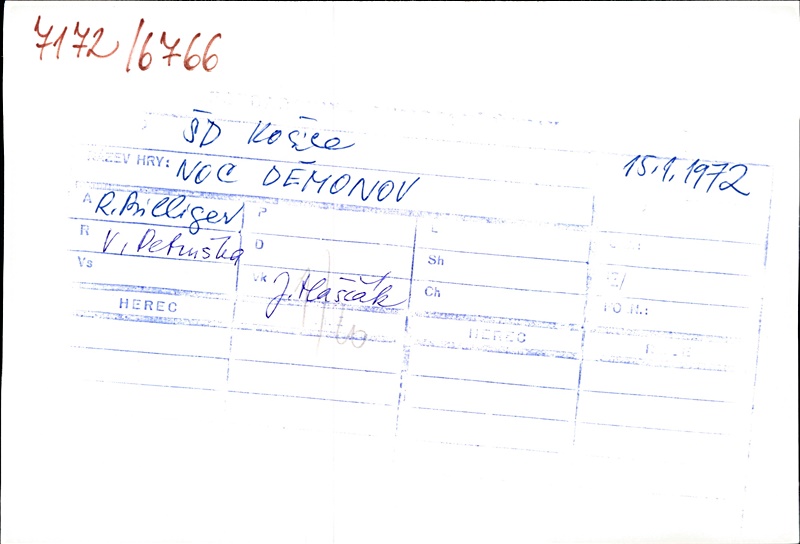 7172/6766
ŠD Košice
ZEV HRY: NOC DÉMONOV
15.1.1972
A R. Billiger P L
R V. Petruška D Sh
Vs vk J. Haščák Ch
HEREC HEREC